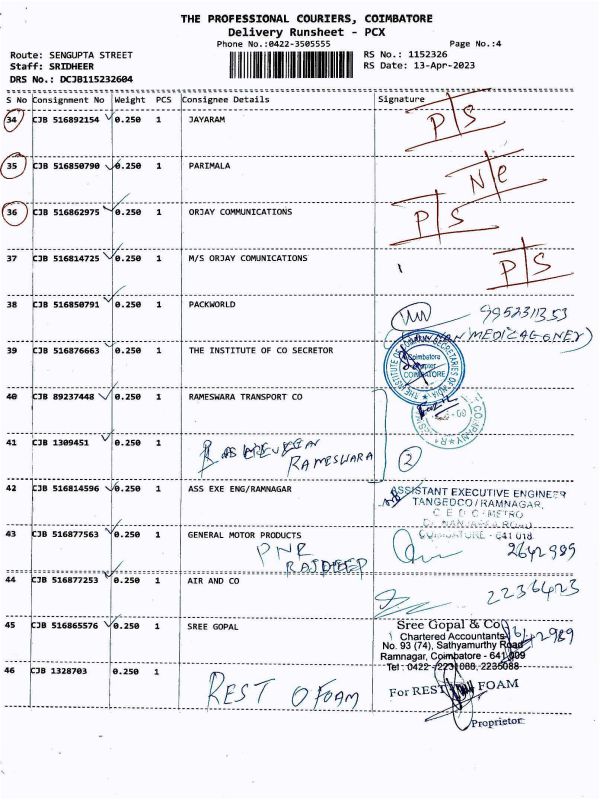 THE PROFESSIONAL COURIERS, COIMBATORE
Delivery Runsheet - PCX
Phone No.:0422-3505555 Page No.:4
Route: SENGUPTA STREET RS No.: 1152326
Staff: SRIDHEER RS Date: 13-Apr-2023
DRS No.: DCJB115232604
S No Consignment No Weight PCS Consignee Details Signature
34 CJB 516892154 0.250 1 JAYARAM P/S
35 CJB 516850790 0.250 1 PARIMALA N/C
36 CJB 516862975 0.250 1 ORJAY COMMUNICATIONS P/S
37 CJB 516814725 0.250 1 M/S ORJAY COMUNICATIONS P/S
38 CJB 516850791 0.250 1 PACKWORLD 9952311353
39 CJB 516876663 0.250 1 THE INSTITUTE OF CO SECRETOR
40 CJB 89237448 0.250 1 RAMESWARA TRANSPORT CO
41 CJB 1309451 0.250 1
RAMESWARA 2
42 CJB 516814596 0.250 1 ASS EXE ENG/RAMNAGAR ASSISTANT EXECUTIVE ENGINEER
TANGEDCO/RAMNAGAR,
43 CJB 516877563 0.250 1 GENERAL MOTOR PRODUCTS COIMBATORE - 641 018.
PNR 2642989
RAJDEEP
44 CJB 516877253 0.250 1 AIR AND CO 2236423
45 CJB 516865576 0.250 1 SREE GOPAL Sree Gopal & Co
Chartered Accountants
No. 93 (74), Sathyamurthy Road
Ramnagar, Coimbatore - 641 009
Tel : 0422 - 2231088, 2236088
46 CJB 1328703 0.250 1
REST O FOAM For REST FOAM
Proprietor